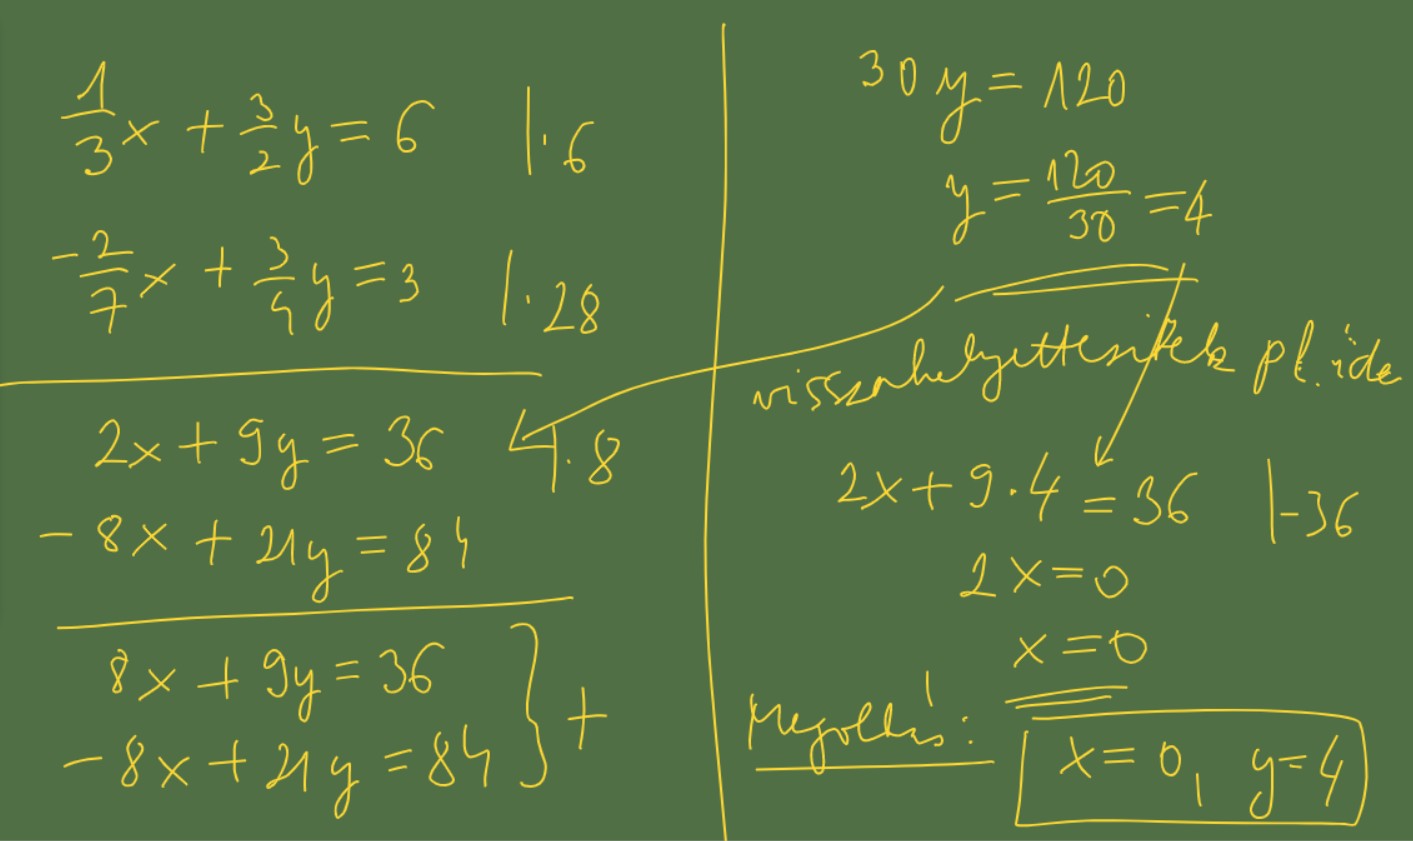 1/3 x + 3/2 y = 6 |·6
-2/7 x + 3/4 y = 3 |·28
2x + 9y = 36 |·8
-8x + 21y = 84
8x + 9y = 36
-8x + 21y = 84 } +
30y = 120
y = 120/30 = 4
visszahelyettesítek pl. ide
2x + 9·4 = 36 |-36
2x = 0
x = 0
Megoldás:
x = 0, y = 4